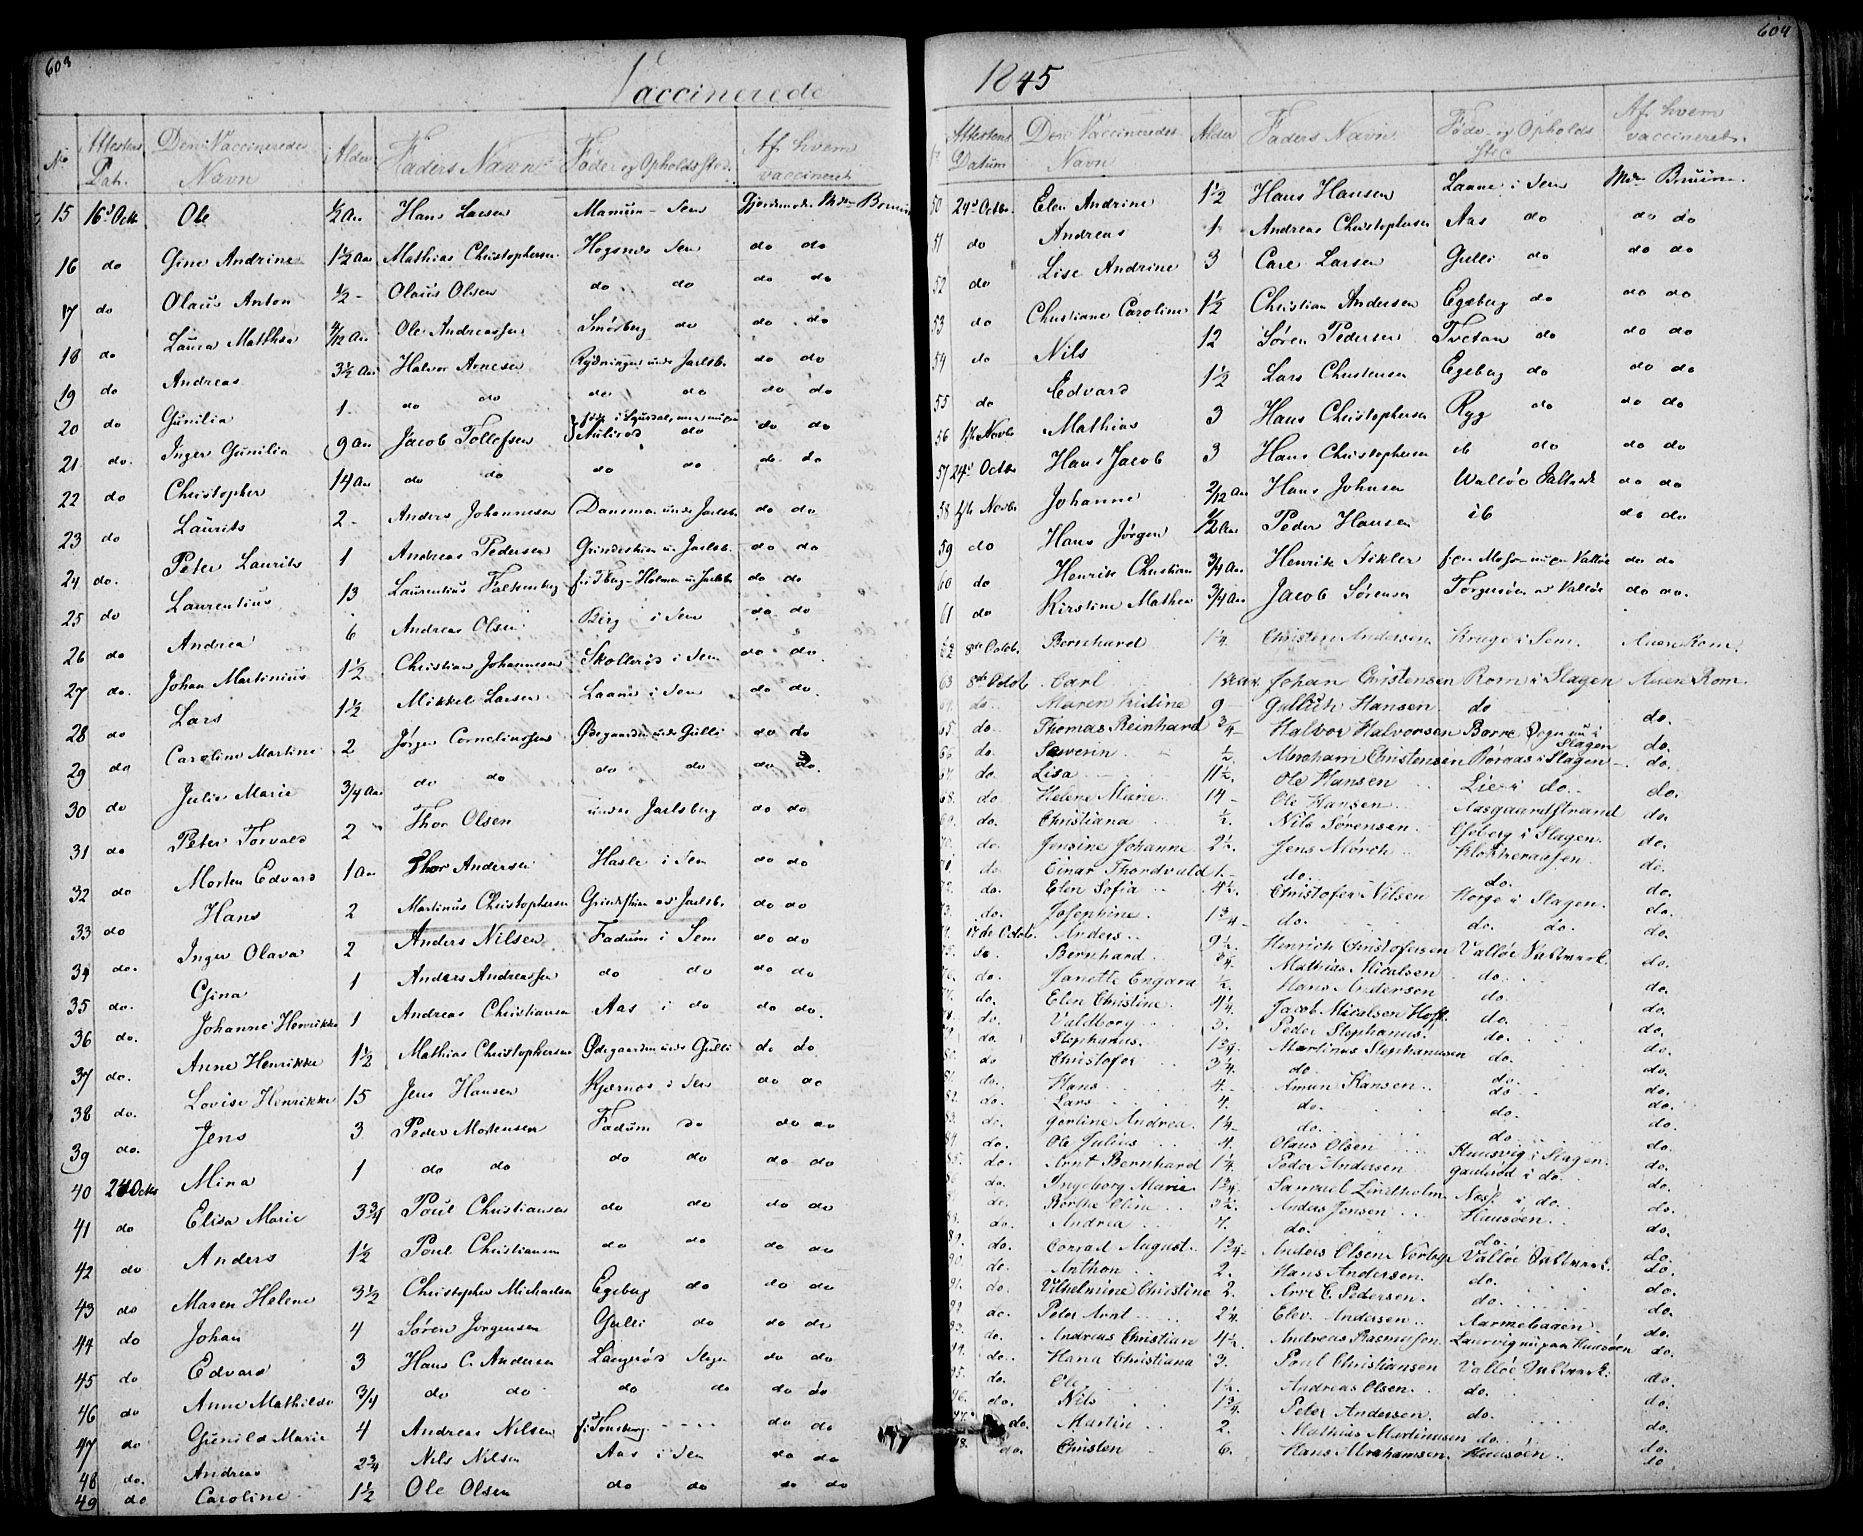 603
Vaccinerede
No Attestens Dat. Den Vaccineredes Navn Alder Faders Navn Føde- og Opholdssted. Af hvem vaccineret
15 16d Octb Ole ½ Aar Hans Larsen Manum - Sem Gjordemoder Mdm Bruun
16 do Gine Andrine 1½ Aar Mathias Christophersen Hogsnes Sem do do
17 do Olaus Anton ½ - Olaus Olsen do do do do
18 do Laura Mathea Ole Andreassen Smørberg do do do
19 do Andreas 3½ Aar Halvor Arnesen Rydningen under Jarlsb. do do
20 do Gunilia 1 - do do do do do do
21 do. Inger Gunilia 9 Aar Jacob Tollefsen Aulirød do do do
22 do Christopher 14 Aar do do do do do do
23 do Laurits 2 - Anders Johannesen Daneman under Jarlsb. do do
24 do. Peter Laurits 1 Andreas Pedersen Grindestien u. Jarlsb. do do
25 do Laurentius 13 Laurentius Falkenberg f. i Tbrg - Holmen u. Jarlsb. do do
26 do Andrea 6 Andreas Olsen Berg i Sem do do
27 do. Johan Martinius 1½ Christian Johannesen Skollerød i Sem do do
28 do Lars 1½ Mikkel Larsen Laane i Sem do do
29 do Caroline Martine 2 Jørgen Corneliussen Ødegaarden under Gulli do do
30 do Julie Marie 3/4 Aar do do do do do do.
31 do Peter Torvald 2 Thor Olsen under Jarlsberg do do
32 do Morten Edvard 1 Aar Thor Andersen Hasle i Sem do do
33 do Hans 2 Martinus Christophersen Grindestien ved Jarlsb. do do
34 do. Inger Olava 2 Anders Nilsen Fadum i Sem do do
35 do. Gina 1 Anders Andreassen do do do do
36 do. Johanne Henrikke 1 Andreas Christiansen Aas i do do do.
37 do. Anne Henrikke 1½ Mathias Christophersen Ødegaarden under Gulli do do
38 do. Lovise Henrikke 15 Jens Hansen Kjærnes i Sem do do
39 do. Jens 3 Peder Mortensen Fadum do do do
40 24 Octb Mina 1 do do do do do do
41 do Elisa Marie 3¾ Poul Christiansen do do do do
42 do Anders 1½ Poul Christiansen do do do do
43 do Maren Helene 3½ Christopher Michaelsen Egeberg do do do
44 do Johan 4 Søren Jørgensen Gulli do do do
45 do Edvard 3 Hans C. Andersen Langerød Slagen do do
46 do Anne Mathilde 3/4 do do do do do do
47 do Gunild Marie 4 Andreas Nilsen f. i Tønsberg - - - - do do
48 do. Andreas 2¾ Nils Nilsen Aas i Sem do do
49 do Caroline 1½ Ole Olsen do do do do
604
1845
Attestens Datum Den Vaccineredes Navn Alder Faders Navn Føde- og Opholds Sted Af hvem vaccineret.
50 24d Octbr. Elen Andrine 1½ Hans Hansen Laane i Sem Mdm Bruun.
51 do Andreas 1 Andreas Christophersen Aas do do do
52 do Lise Andrine 3 Carl Larsen Gulli do do do
53 do Christiane Caroline 1½ Christian Andersen Egeberg do do do
54 do Nils 12 Søren Pedersen Tvetan do do do
55 do Edvard 1½ Lars Christensen Egeberg do do do
56 Novbr Mathias 3 Hans Christophersen Ryg do do do
57 24d Octbr Hans Jacob 3 Hans Christophersen ib do do do
58 Novbr Johanne 2/12 Aar Hans Johnsen Walløe Saltverk do do
59 do Hans Jørgen ½ Aar Peder Hansen ib do do
60 do Henrik Christian 3/4 Aar Henrik Nikler f. paa Moss nu paa Valløe do do
61 do Kirstine Mathea 3/4 Aar Jacob Sørensen Torgersøen ved Valløe do do.
62 8de Octob. Bernhard 1¼. Christen Andersen Kruge i Sem. Auen Rom.
63 8de Octob Carl 1 Johan Christensen Rom i Slagen Auen Rom.
64. do Maren Lidine 9 - Gulbrik Hansen do do.
65. do. Thomas Reinhard ¾ - Halvor Halvorsen Borre Sogn nu i Slagen do.
66. do. Severin ½. Abraham Christensen Røraas i Slagen - do.
67. do. Lisa 11½. Ole Hansen Lie i do. do.
68. do. Helene Marie. 14 - Ole Hansen. Aasgaardstrand do.
69. do. Christiana ½. Nils Sørensen. Eseberg i Slagen. do.
70. do. Jensine Johanne 2½. Jens Mørch. Klokkeraasen. do.
71. do. Einar Thordvald 1. - do. do. do.
72. do. Elen Sofia 4½. Christofer Nilsen Horge i Slagen. do.
73. do. Josephine. 1¾ - do. do. do. do.
74. 17de Octob. Anders 9½. Henrich Christofersen Valløe Saltværk. do.
75. do Bernhard ¾. Mathias Micalsen do. do.
76. do. Janette Engara ½. Hans Andersen do. do.
77. do. Elen Christine. 4¼. Jacob Micalsen Hoff. do. do.
78. do. Valdborg 3. Peder Stephanus. do. do.
79. do. Stephanus. 1¾. Martinus Stephanussen do. do.
80. do Christofer 3¼. do. do. do.
81. do. Hans 4. - Amun Hansen. do. do.
82. do. Lars 4. do. do. do.
83. do. Gorline Andrea. 1¼ - do. do. do.
84. do. Ole Julius 4. Olaus Olsen Huusvig i Slagen. do.
85. do. Arnt Bernhard 1¼. Peder Andersen Gauterød i do. do.
86 do. Ingeborg Marie 1¾. Samuel Lindtholm Nes i do. do.
87. do. Berthe Oline 3½. Anders Jensen Huusøen do.
88. do. Andrea 7. do. do. do.
89. do. Conrad August. 1¾ - Anders Olsen Norbye Valløe Saltværk. do.
90. do. Anthon 2. Hans Andersen. do. do.
91. do. Vilhelmine Christine 2. Arve C. Pedersen. do. do.
92. do. Peter Arnt 2¼. Elev Andersen. Narmebaaen. do.
93. do. Andreas Christian 4½. Andreas Rasmussen. Laurvig nu paa Huusøen do.
94. do. Hana Christiana 3. Poul Christiansen Valløe Saltværk. do.
95. do. Ole 1½. Andreas Olsen. do. do.
96. do. Nils 1¾. Peter Andersen. do. do.
97. do. Martin 2. Mathias Martinusen do. do.
98. do. Christen 6. Hans Abrahamsen. Huusøen do.